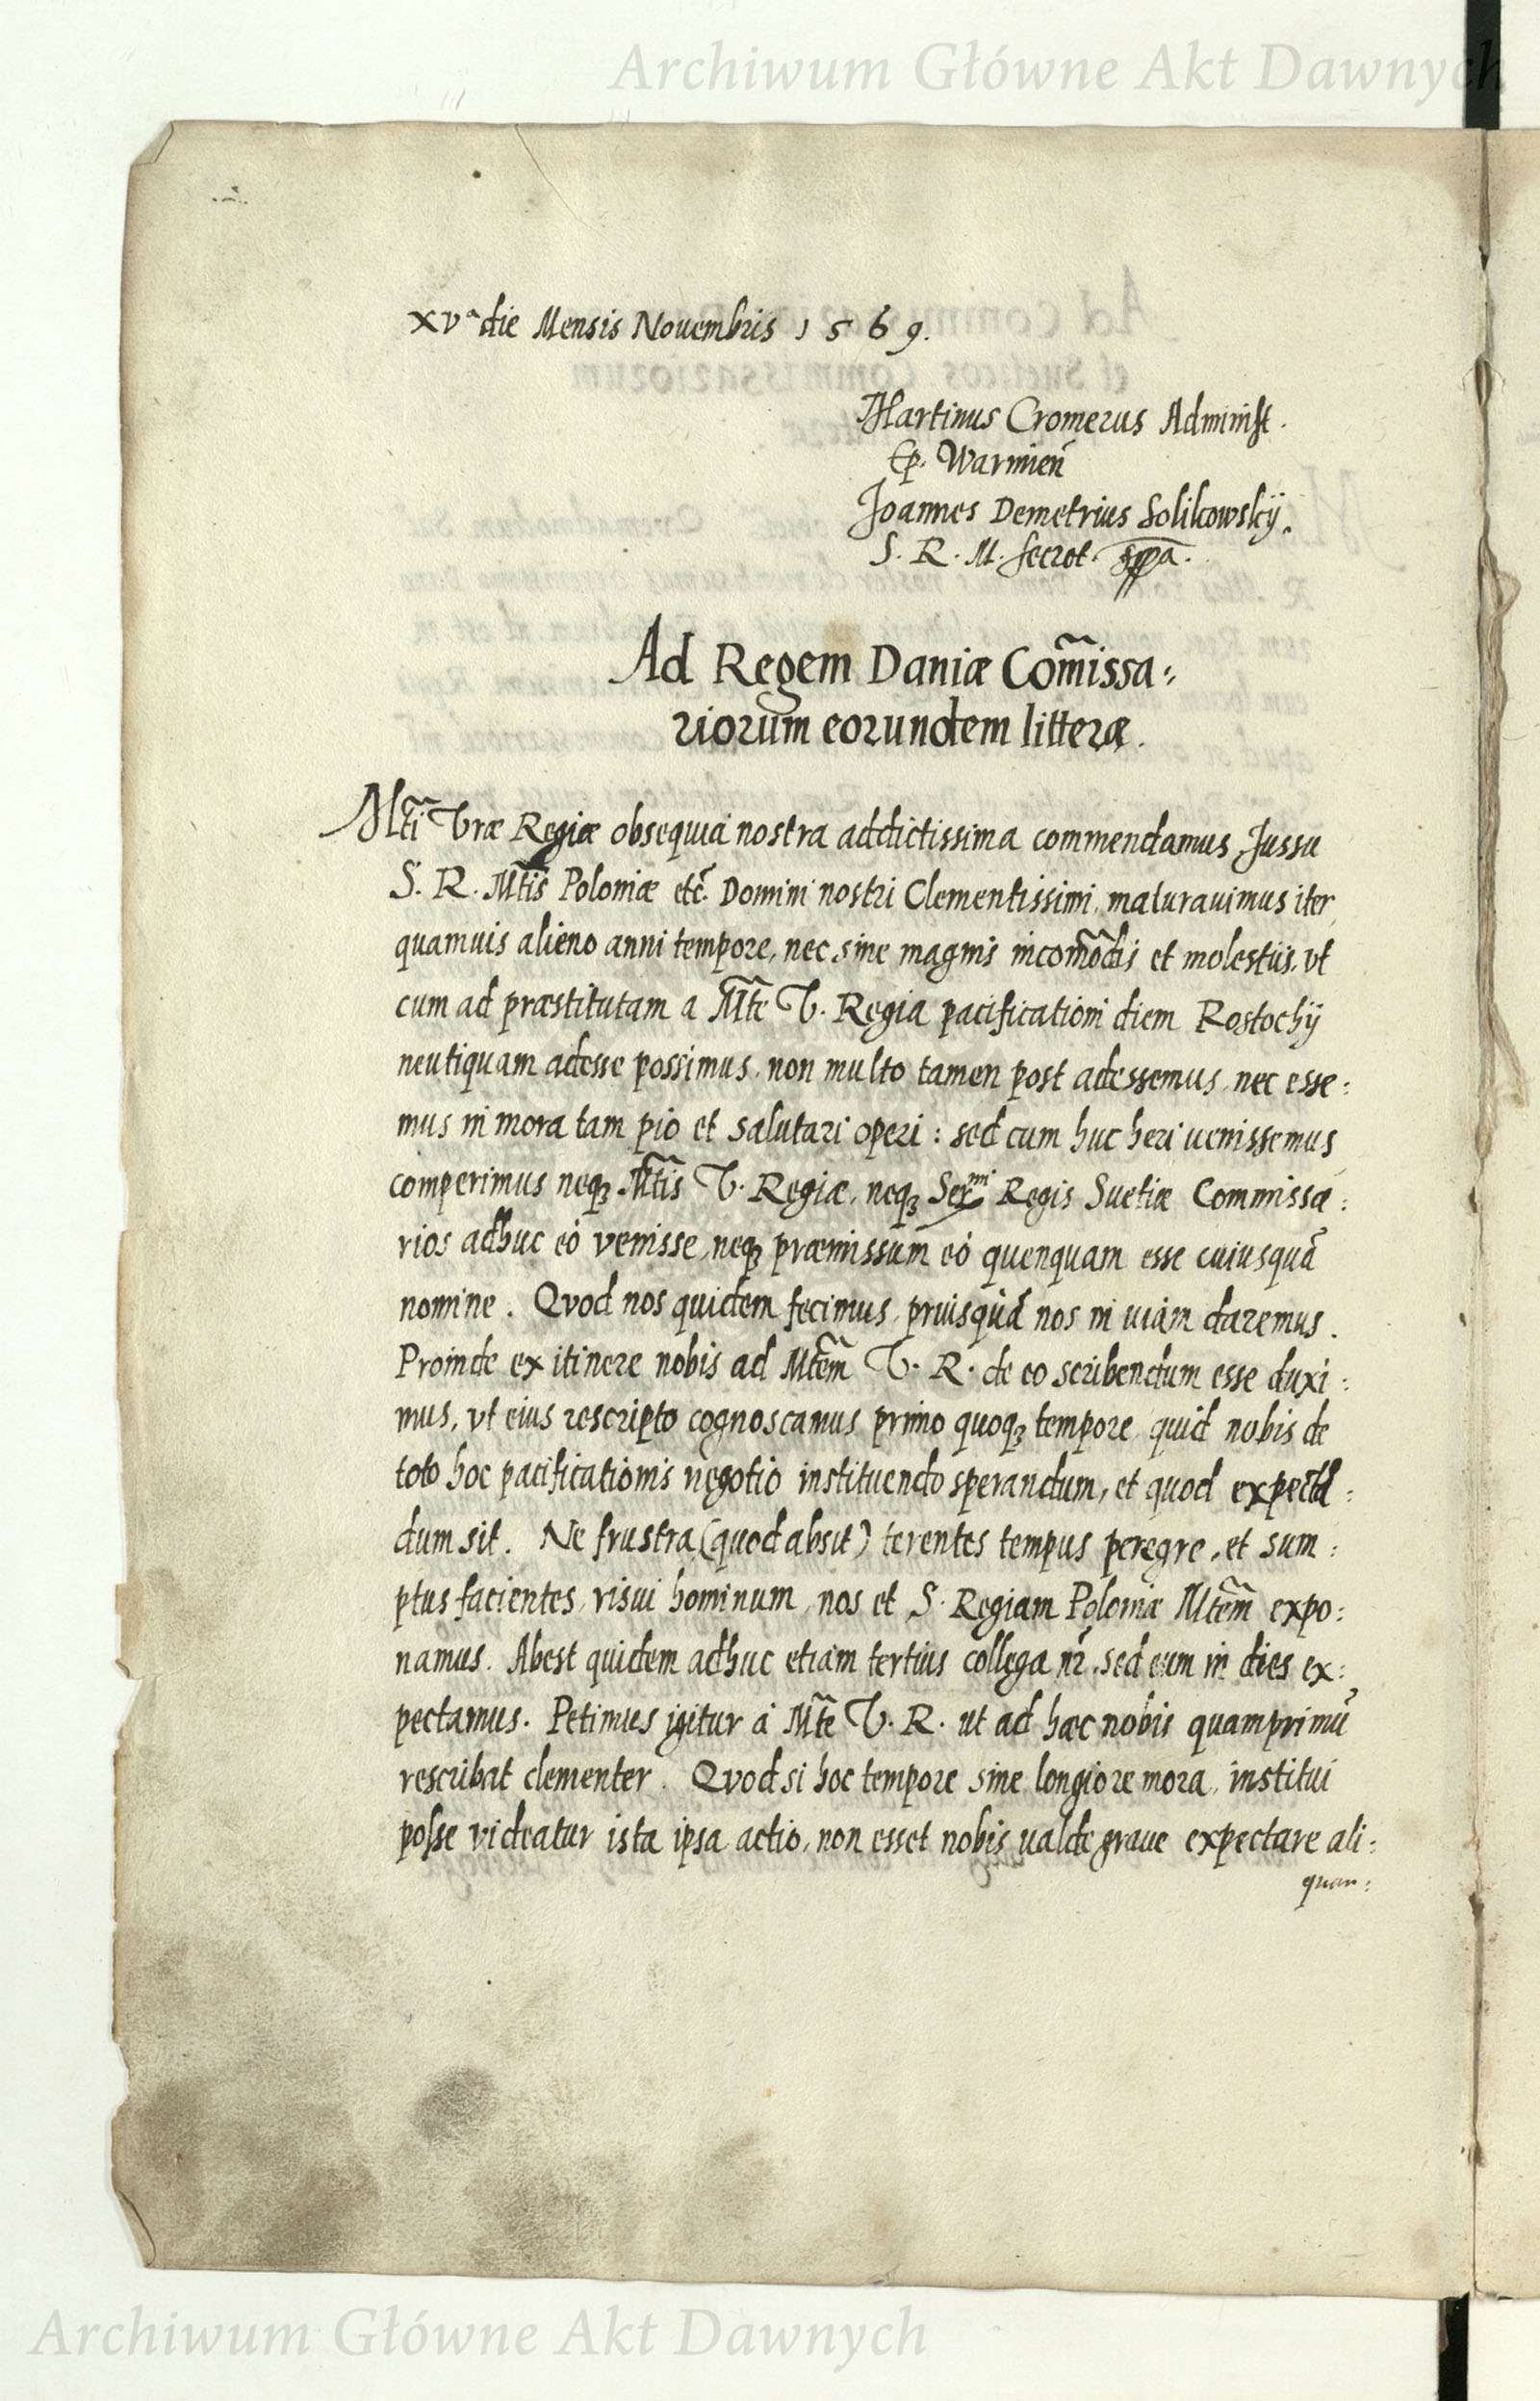 Archiwum Główne Akt Dawnych
XVª die Mensis Nouembris 1569.
Martinus Cromerus Administ.
Ep. Warmien̄
Joannes Demetrius Solikowskÿ.
S. R. M. Secret. sspa.
Ad Regem Daniæ Com̃issa:
riorum eorundem litteræ.
Mt̃i Vr̃æ Regiæ obsequia nostra addictissima commendamus. Jussu
S. R. Mt̃is Poloniæ etc̃. Domini nostri Clementissimi, maturauimus iter
quamuis alieno anni tempore, nec sine magnis incom̃odis et molestiis, vt
cum ad præstitutam a Mt̃e V. Regia pacificationi diem Rostochÿ
neutiquam adesse possimus, non multo tamen post adessemus, nec esse:
mus in mora tam pio et salutari operi: sed cum huc heri uenissemus
comperimus neqꝫ Mt̃is V. Regiæ, neqꝫ Ser.mi Regis Suetiæ Commissa:
rios adhuc eò venisse, neqꝫ præmissum eò quenquam esse cuiusquã
nomine. Qvod nos quidem fecimus, priusquã nos in uiam daremus.
Proinde ex itinere nobis ad Mt̃em V. R. de eo scribendum esse duxi:
mus, vt eius rescripto cognoscamus primo quoqꝫ tempore quid nobis de
toto hoc pacificationis negotio instituendo sperandum, et quod expectã:
dum sit. Ne frustra (quod absit) terentes tempus peregre, et sum:
ptus facientes, risui hominum, nos et S. Regiam Poloniæ Mt̃em expo:
namus. Abest quidem adhuc etiam tertius collega nr̃, sed eum in dies ex:
pectamus. Petimus igitur à Mt̃e V. R. ut ad hæc nobis quamprimũ
rescribat clementer. Qvod si hoc tempore sine longiore mora, institui
posse videatur ista ipsa actio, non esset nobis ualde graue expectare ali:
quan:
Archiwum Główne Akt Dawnych